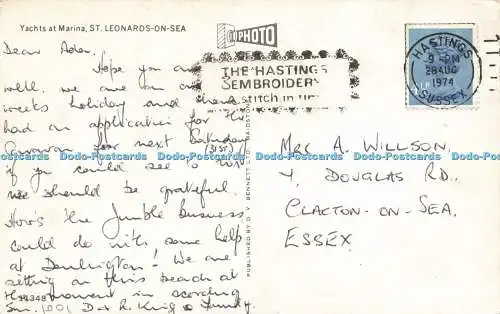 Yachts at Marina, ST. LEONARDS-ON-SEA
PHOTO
Dear Ader.
Hope you are
well, we are on our
weeks holiday and have
had an application for the
Caravan for next Saturday
(31st)
if you could see to this
we should be grateful.
How's the Jumble business
could do with some help
at Donington! We are
sitting on this beach at
the moment in scorching
Sun. 1001 D & R. King & Family
H14348
PUBLISHED BY D. V. BENNETT LTD., MAIDSTONE
THE HASTINGS
EMBROIDERY
a stitch in time
HASTINGS
9 - PM
28 AUG
1974
SUSSEX
Mrs A. WILLSON,
4, DOUGLAS RD.,
CLACTON-ON-SEA,
ESSEX
Dodo-Postcards Dodo-Postcards Dodo-Postcards Dodo-Postcards Dodo-Postcards